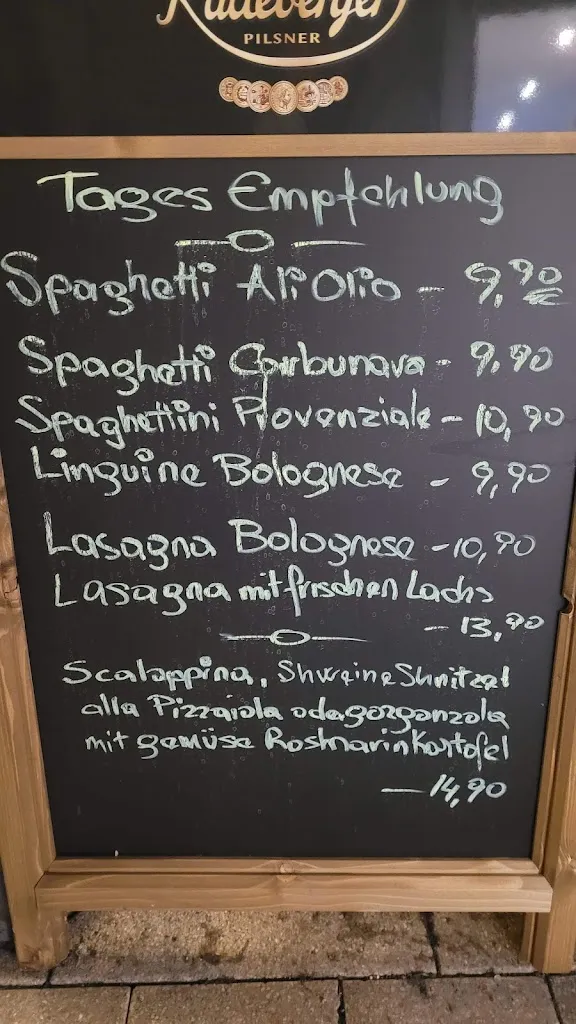 Radeberger
PILSNER
Tages Empfehlung
Spaghetti Ali Olio - 9,90
Spaghetti Carbunava - 9,90
Spaghettini Provenziale - 10,90
Linguine Bolognese - 9,90
Lasagna Bolognese - 10,90
Lasagna mit frischen Lachs
- 13,90
Scalappina, Shweine Shnitzel
alla Pizzaiola odagorgonzola
mit gemüse Rosmarin Kartofel
- 14,90